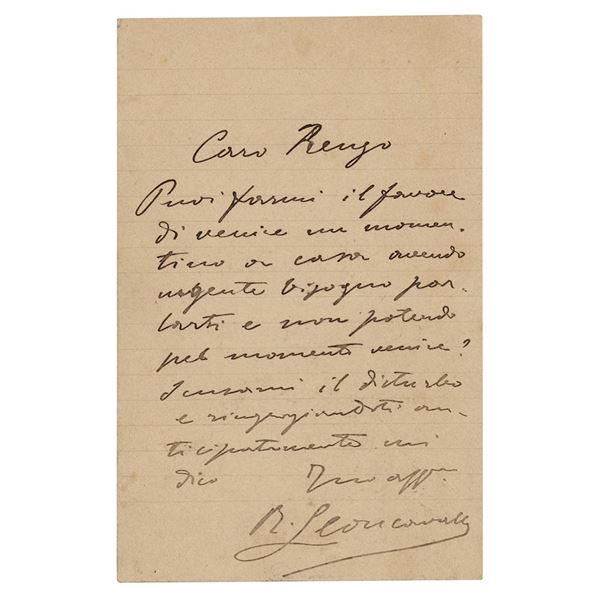 Caro Renzo
Puoi farmi il favore
di venire un momen-
tino a casa avendo
urgente bisogno par-
larti e non potendo
pel momento venire?
Scusami il disturbo
e ringraziandoti an-
ticipatamente mi
dico Tuo aff.mo
R. Leoncavallo